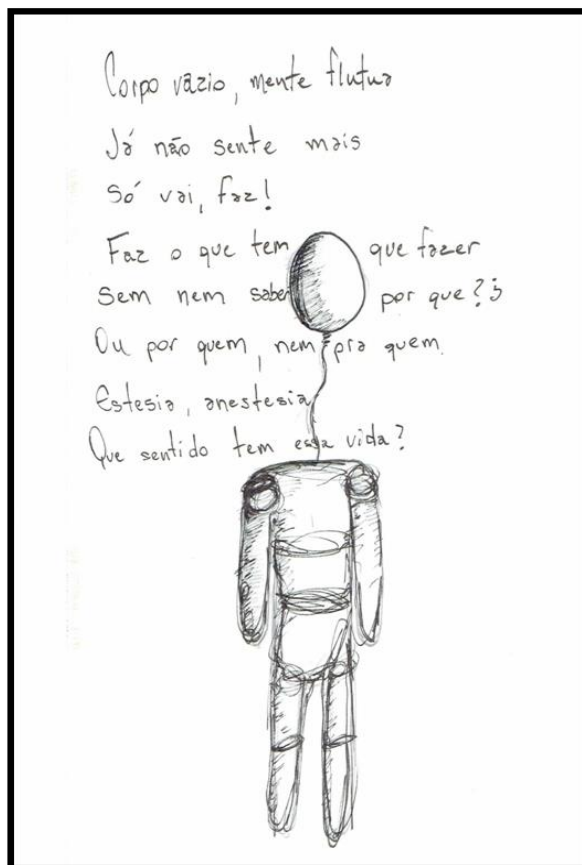 Corpo vazio, mente flutua
Já não sente mais
Só vai, faz!
Faz o que tem que fazer
Sem nem saber por que?
Ou por quem, nem pra quem.
Estesia, anestesia
Que sentido tem essa vida?